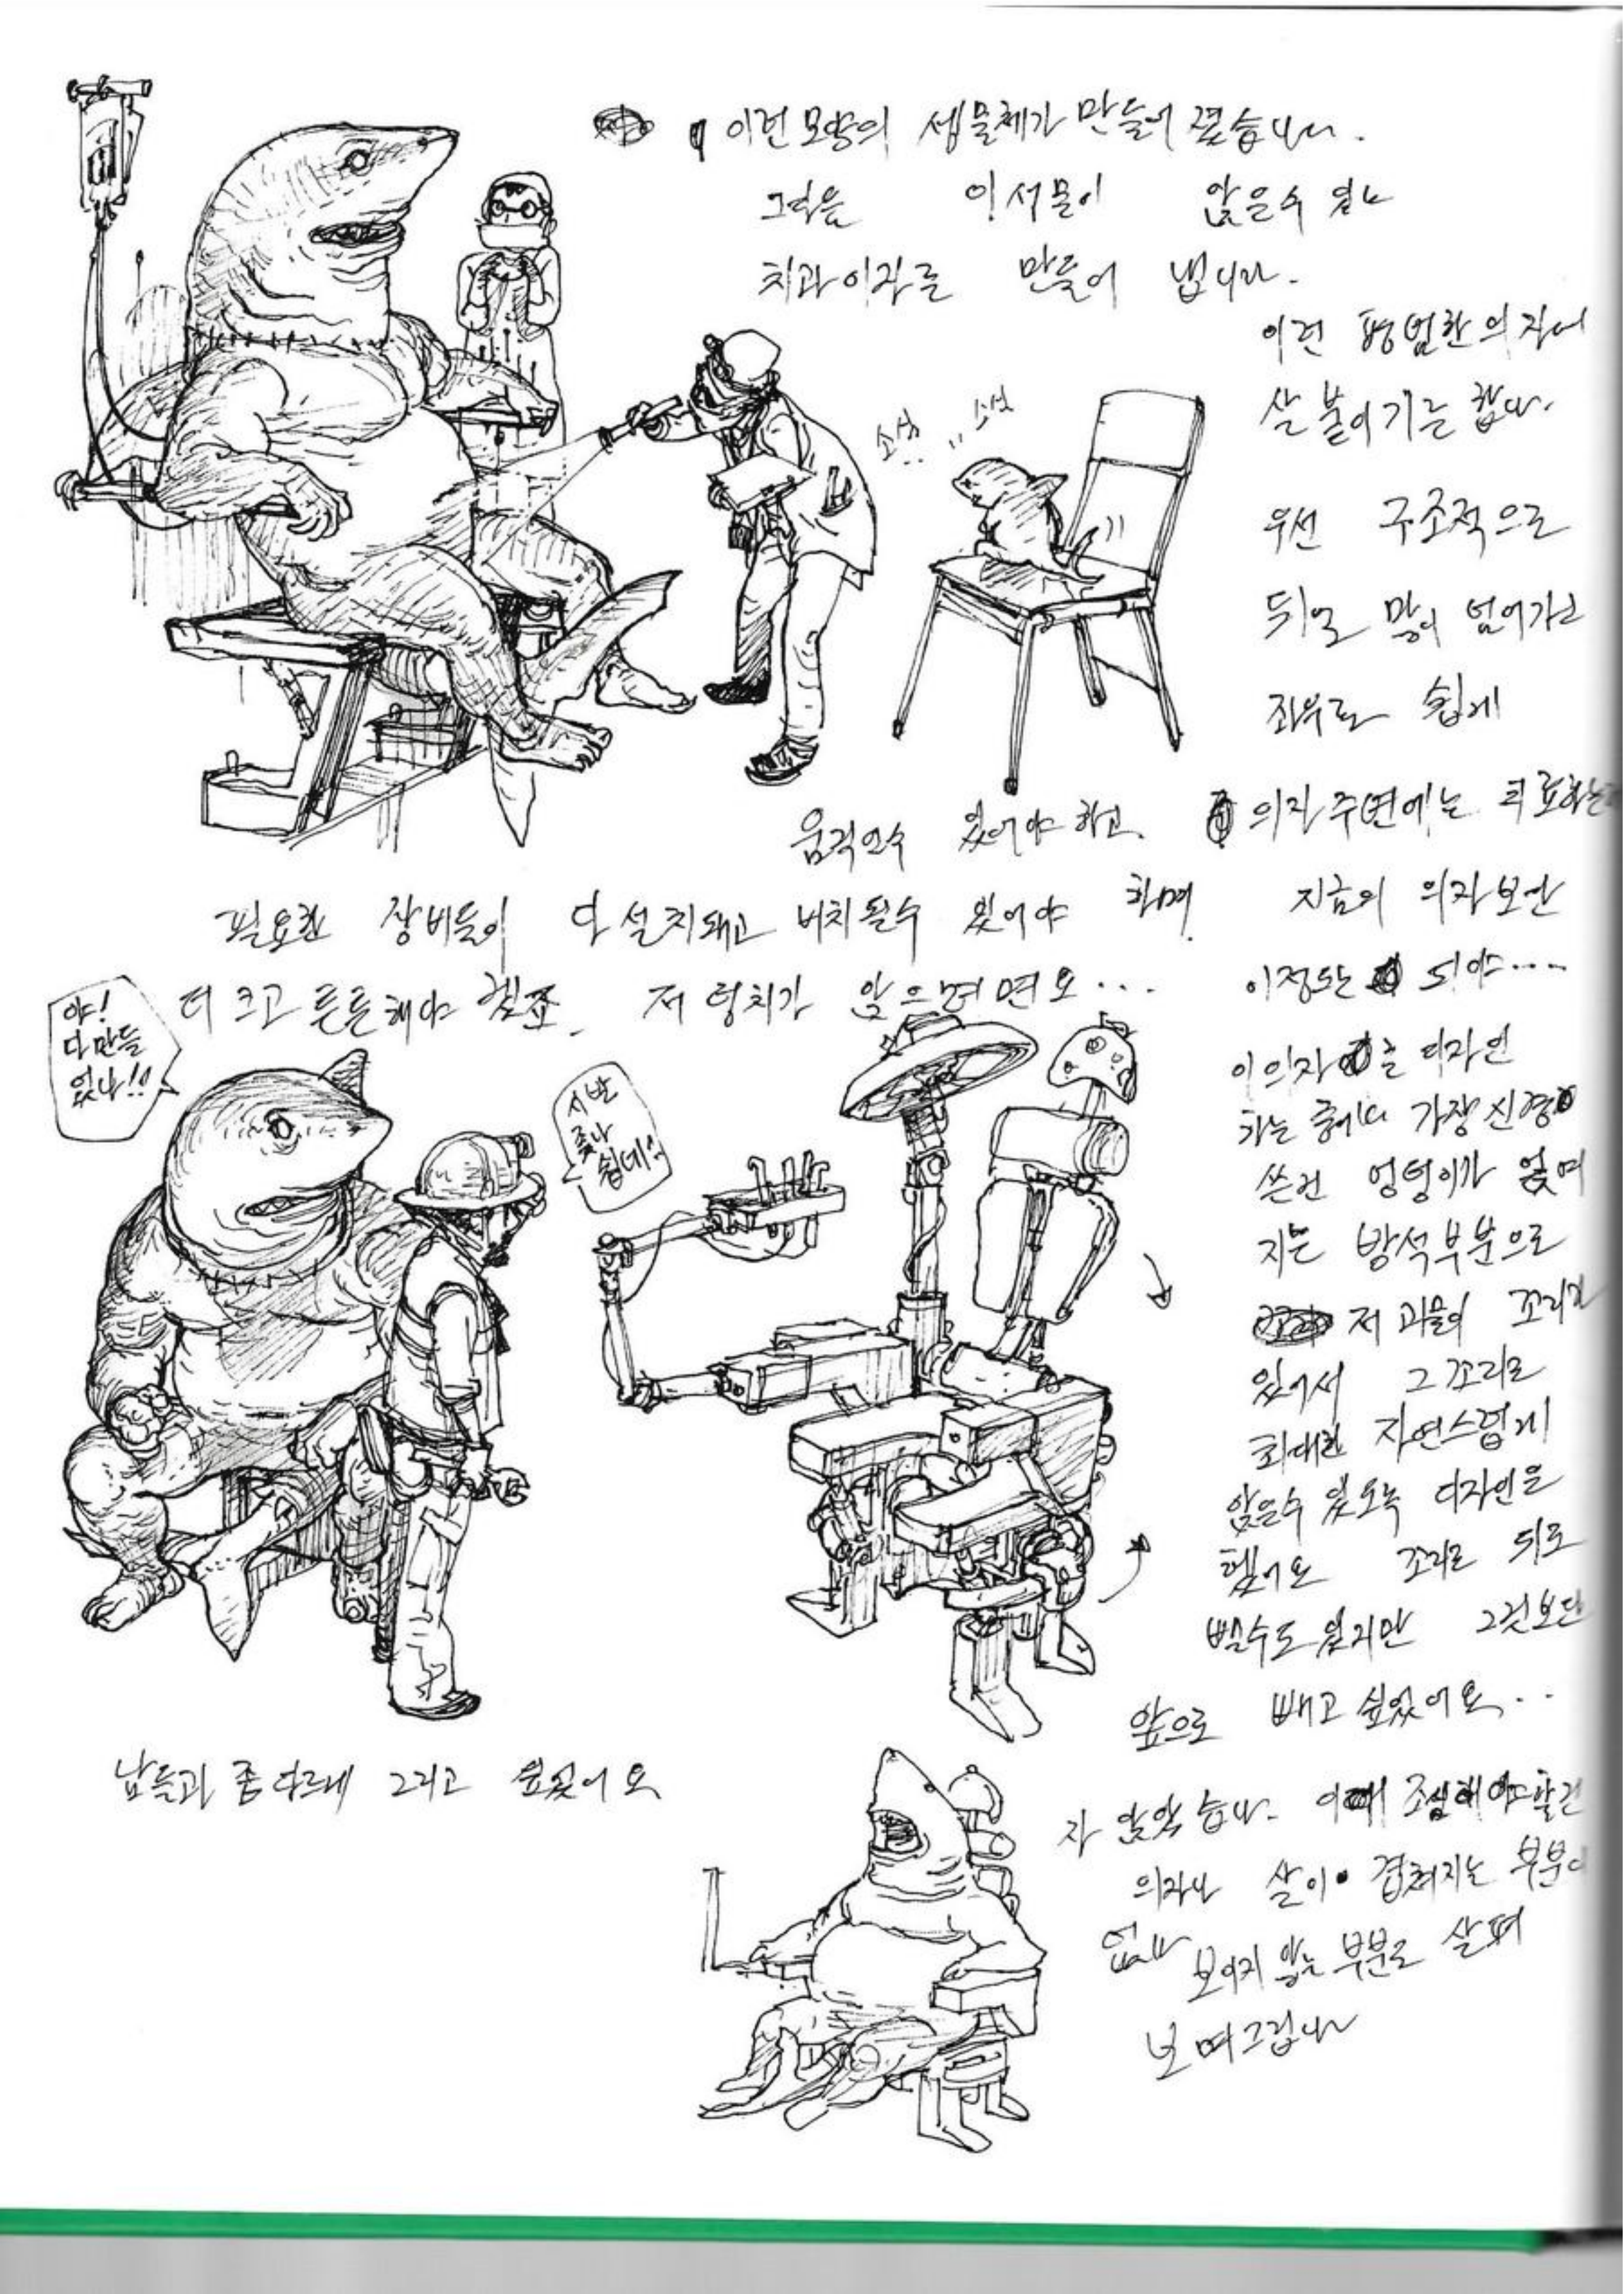 이런 모양의 생물체가 만들어 졌습니다.
그럼 이 생물이 앉을수 있는
치과의자를 만들어 냅니다.
이런 평범한 의자에
살 붙이기를 합니다.
소심.. 소심
우선 구조적으로
뒤로 많이 넘어가고
좌우로 쉽게
움직일수 있어야 하고. 의자 주변에는 치료하는
필요한 장비들이 다 설치돼고 배치될수 있어야 하며 지금의 의자보단
더 크고 튼튼해야 겠죠. 저 덩치가 앉으려면요... 이정도는 되야...
야!
다 만들
었냐!!
시발
좆나
쉽네!!
이 의자를 디자인
하는 중에 가장 신경
쓴건 엉덩이가 얹여
지는 방석부분으로
저 괴물이 꼬리가
있어서 그 꼬리를
최대한 자연스럽게
앉을수 있도록 디자인을
했어요 꼬리를 뒤로
뺄수도 있지만 그것보단
앞으로 빼고 싶었어요...
남들과 좀 다르게 그리고 싶었어요
자 앉았습니다. 이때 조심해야할건
의자나 살이 겹쳐지는 부분이
없나 보이지 않는 부분도 살펴
보며 그립니다